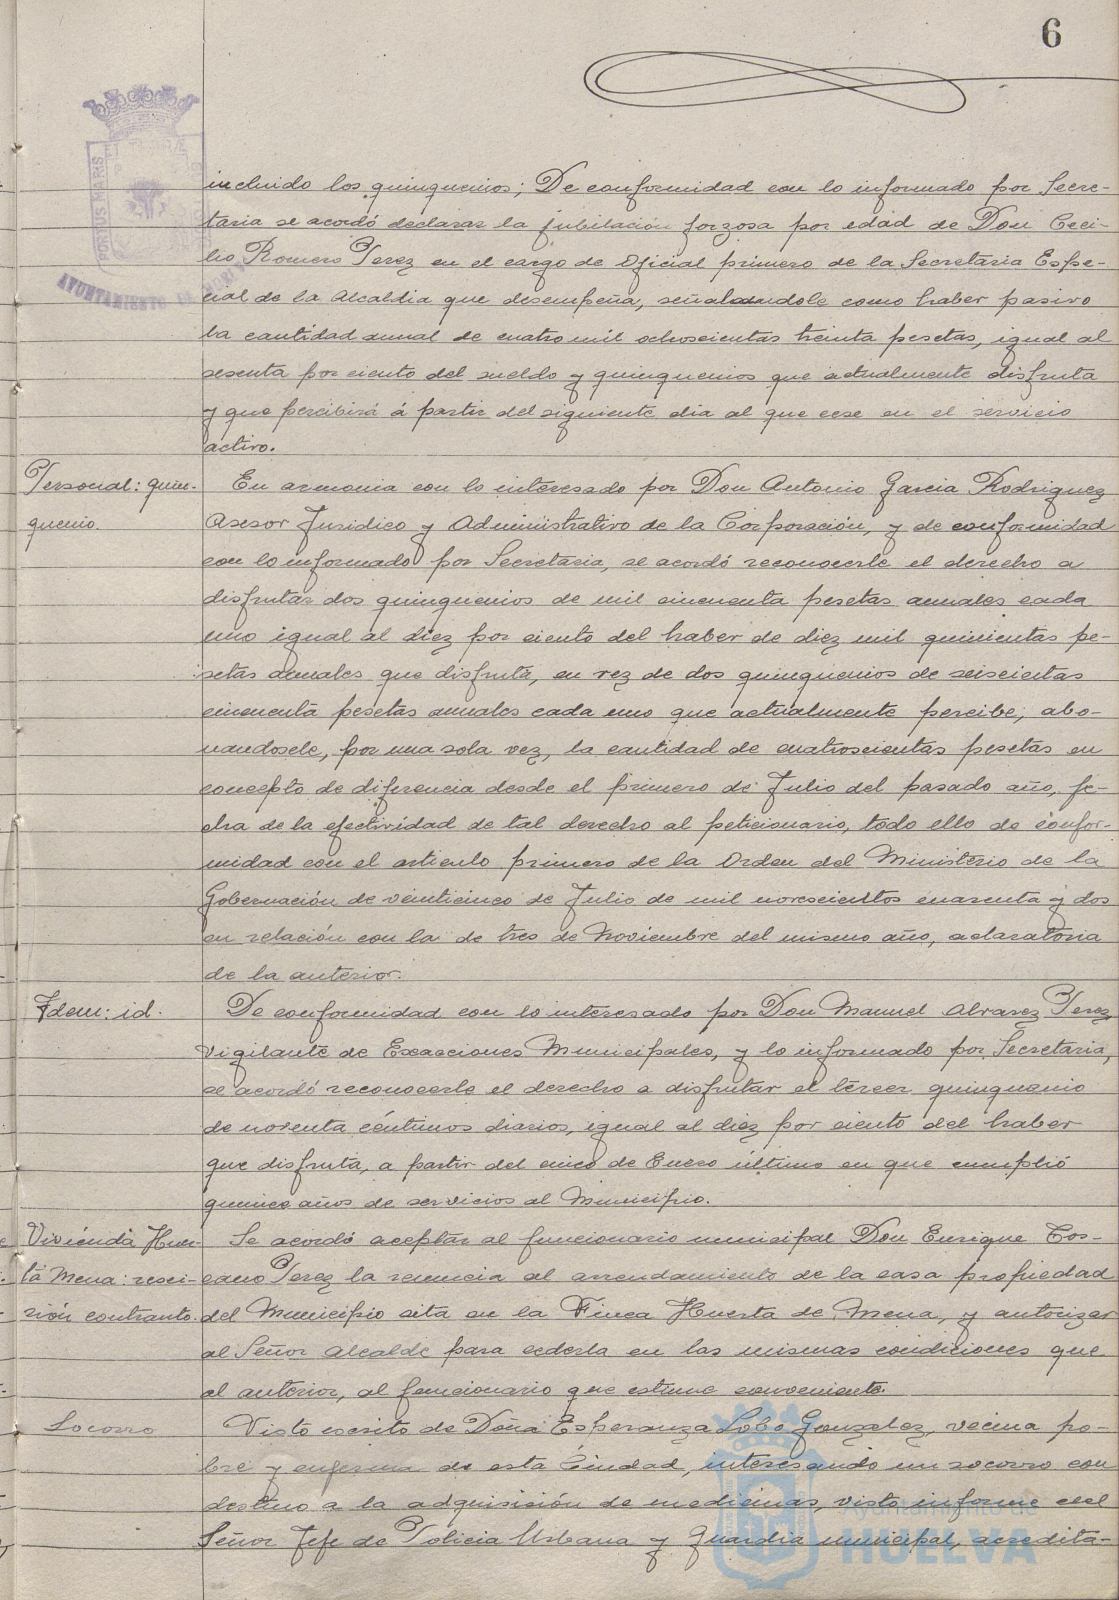 6
PORTUS MARIS
AYUNTAMIENTO DE
incluido los quinquenios; De conformidad con lo informado por Secre-
taria se acordó declarar la jubilación forzosa por edad de Don Ceci-
lio Romero Perez en el cargo de Oficial primero de la Secretaria Espe-
cial de la Alcaldia que desempeña, señalandole como haber pasivo
la cantidad anual de cuatro mil ochocientas treinta pesetas, igual al
sesenta por ciento del sueldo y quinquenios que actualmente disfruta
y que percibirá á partir del siguiente dia al que cese en el servicio
activo.
Personal: quin-
quenio.
En armonia con lo interesado por Don Antonio Garcia Rodriguez
Asesor Juridico y Administrativo de la Corporación, y de conformidad
con lo informado por Secretaria, se acordó reconocerle el derecho a
disfrutar dos quinquenios de mil cincuenta pesetas anuales cada
uno igual al diez por ciento del haber de diez mil quinientas pe-
setas anuales que disfruta, en vez de dos quinquenios de seiscientas
cincuenta pesetas anuales cada uno que actualmente percibe, abo-
nandosele, por una sola vez, la cantidad de cuatroscientas pesetas en
concepto de diferencia desde el primero de Julio del pasado año, fe-
cha de la efectividad de tal derecho al peticionario, todo ello de confor-
midad con el articulo primero de la Orden del Ministerio de la
Gobernación de veinticinco de Julio de mil novescientos cuarenta y dos
en relación con la de tres de Noviembre del mismo año, aclaratoria
de la anterior.
Idem: id.
De conformidad con lo interesado por Don Manuel Alvarez Perez,
Vigilante de Exacciones Municipales, y lo informado por Secretaria,
se acordó reconocerle el derecho a disfrutar el tercer quinquenio
de noventa céntimos diarios, igual al diez por ciento del haber
que disfruta, a partir del cinco de Enero último en que cumplió
quince años de servicios al Municipio.
Vivienda Huer-
ta Mena: resci-
sión contranto.
Se acordó aceptar al funcionario municipal Don Enrique Tos-
cano Perez la renuncia al arrendamiento de la casa propiedad
del Municipio sita en la Finca Huerta de Mena, y autorizar
al Señor Alcalde para cederla en las mismas condiciones que
al anterior, al funcionario que estime conveniente.
Socorro
Visto escrito de Doña Esperanza Lobo Gonzalez, vecina po-
bre y enferma de esta Ciudad, interesando un socorro con
destino a la adquisición de medicinas, visto informe del
Señor Jefe de Policia Urbana y Guardia municipal, acredita-
Ayuntamiento de
HUELVA